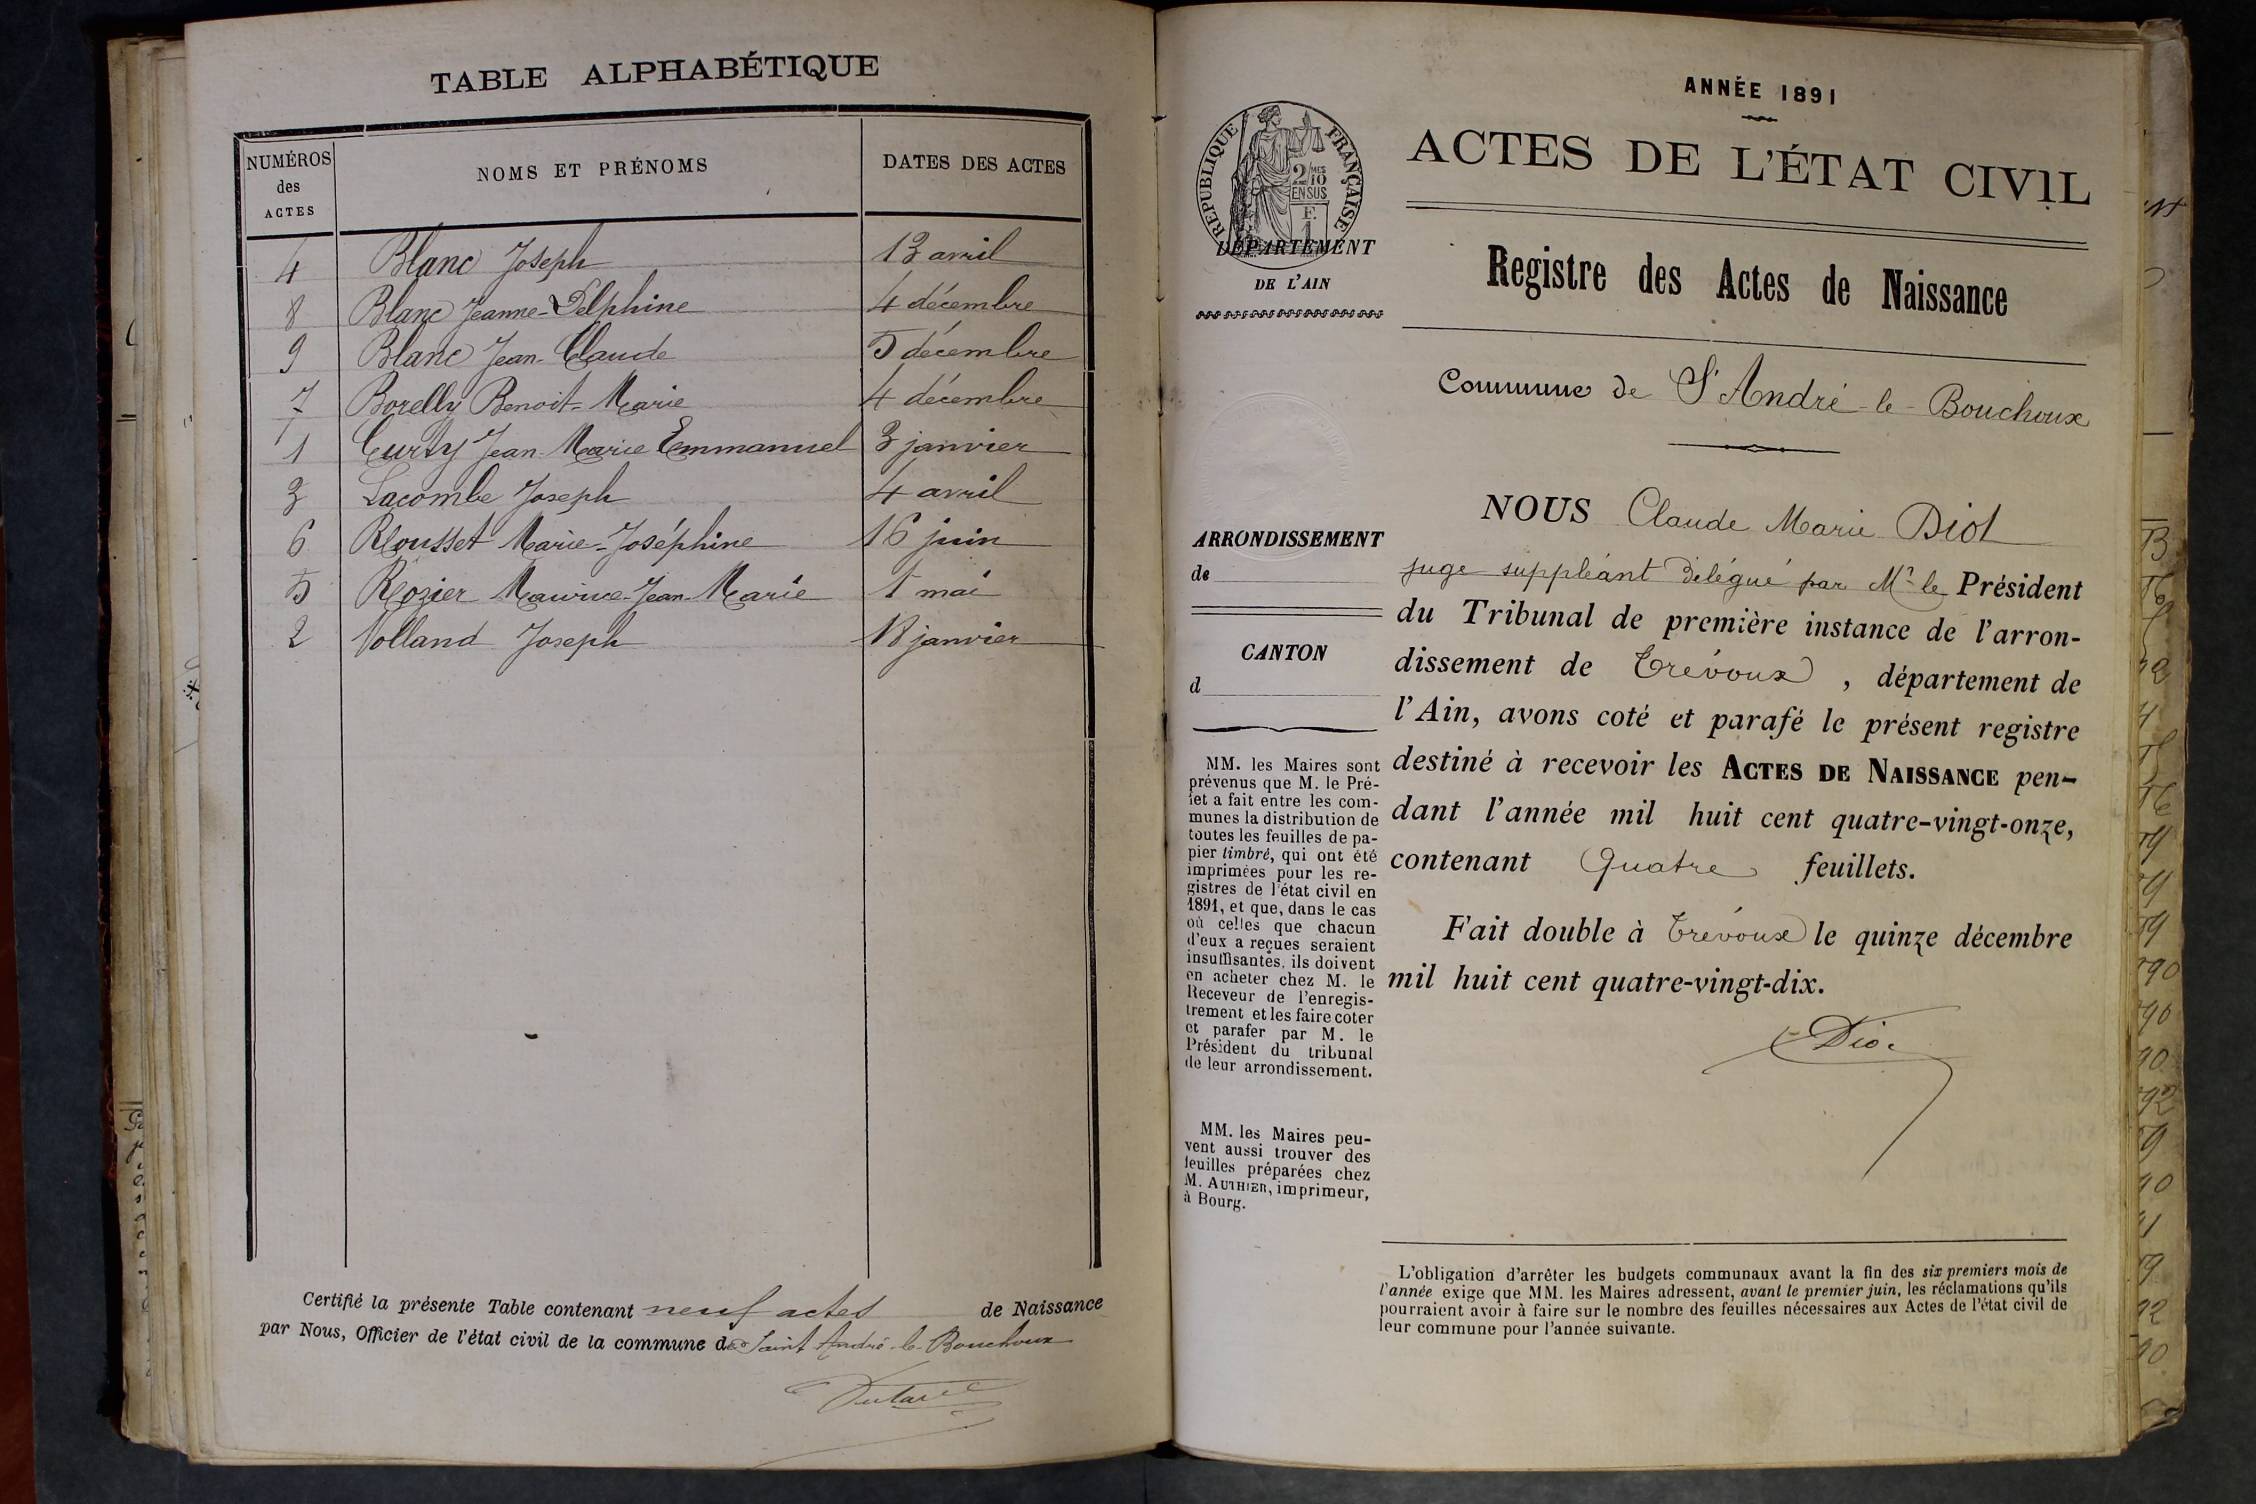 TABLE ALPHABÉTIQUE
NUMÉROS des ACTES NOMS ET PRÉNOMS DATES DES ACTES
4 Blanc Joseph 13 avril
8 Blanc Jeanne-Delphine 4 décembre
9 Blanc Jean-Claude 5 décembre
7 Borelly Benoit-Marie 4 décembre
1 Curty Jean-Marie Emmanuel 3 janvier
3 Lacombe Joseph 4 avril
6 Rousset Marie-Joséphine 16 juin
5 Rozier Maurice-Jean-Marie 1 mai
2 Volland Joseph 18 janvier
Certifié la présente Table contenant neuf actes de Naissance
par Nous, Officier de l'état civil de la commune de Saint André-le-Bouchoux
ANNÉE 1891
ACTES DE L'ÉTAT CIVIL
RÉPUBLIQUE FRANÇAISE
2/10MES
EN SUS
F.
1
DÉPARTEMENT
DE L'AIN
Registre des Actes de Naissance
Commune de St André-le-Bouchoux
ARRONDISSEMENT
de
CANTON
d
MM. les Maires sont
prévenus que M. le Pré-
fet a fait entre les com-
munes la distribution de
toutes les feuilles de pa-
pier timbré, qui ont été
imprimées pour les re-
gistres de l'état civil en
1891, et que, dans le cas
où celles que chacun
d'eux a reçues seraient
insuffisantes, ils doivent
en acheter chez M. le
Receveur de l'enregis-
trement et les faire coter
et parafer par M. le
Président du tribunal
de leur arrondissement.
MM. les Maires peu-
vent aussi trouver des
feuilles préparées chez
M. AUTHIER, imprimeur,
à Bourg.
NOUS Claude Marie Diot
juge suppléant délégué par Mr le Président
du Tribunal de première instance de l'arron-
dissement de Trévoux, département de
l'Ain, avons coté et parafé le présent registre
destiné à recevoir les ACTES DE NAISSANCE pen-
dant l'année mil huit cent quatre-vingt-onze,
contenant Quatre feuillets.
Fait double à Trévoux le quinze décembre
mil huit cent quatre-vingt-dix.
L'obligation d'arrêter les budgets communaux avant la fin des six premiers mois de
l'année exige que MM. les Maires adressent, avant le premier juin, les réclamations qu'ils
pourraient avoir à faire sur le nombre des feuilles nécessaires aux Actes de l'état civil de
leur commune pour l'année suivante.